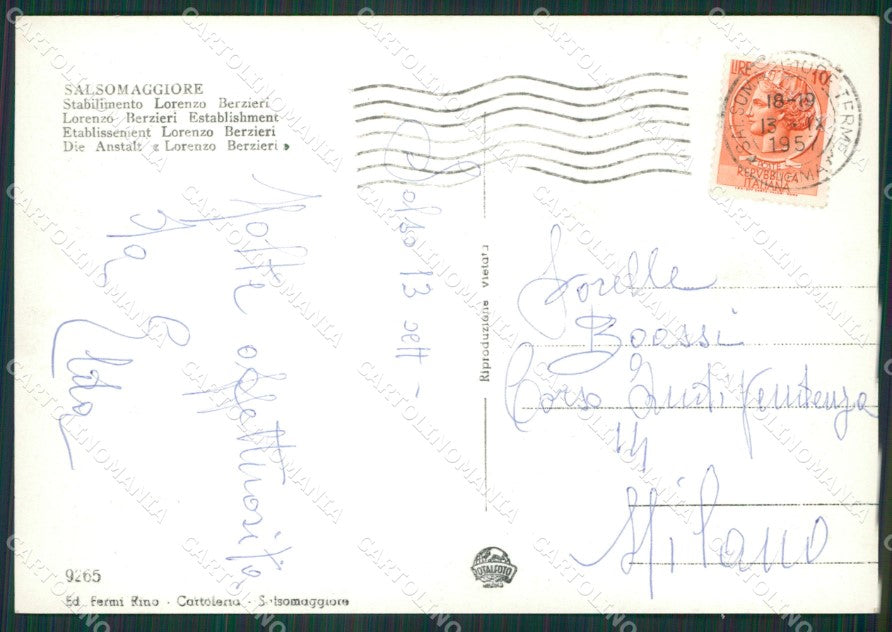 SALSOMAGGIORE
Stabilimento Lorenzo Berzieri
Lorenzo Berzieri Establishment
Etablissement Lorenzo Berzieri
Die Anstalt « Lorenzo Berzieri »
LIRE 10
POSTE
REPVBBLICA
ITALIANA
SALSOMAGGIORE TERME
18-19
13 IX
1957
Salso 13 sett -
Molte affettuosità
Sorelle
Boassi
Corso Indipendenza
14
Milano
Riproduzione vietata
TOTALFOTO
MILANO
9265
Ed. Fermi Rino - Cartoleria - Salsomaggiore
CARTOLINOMANIA